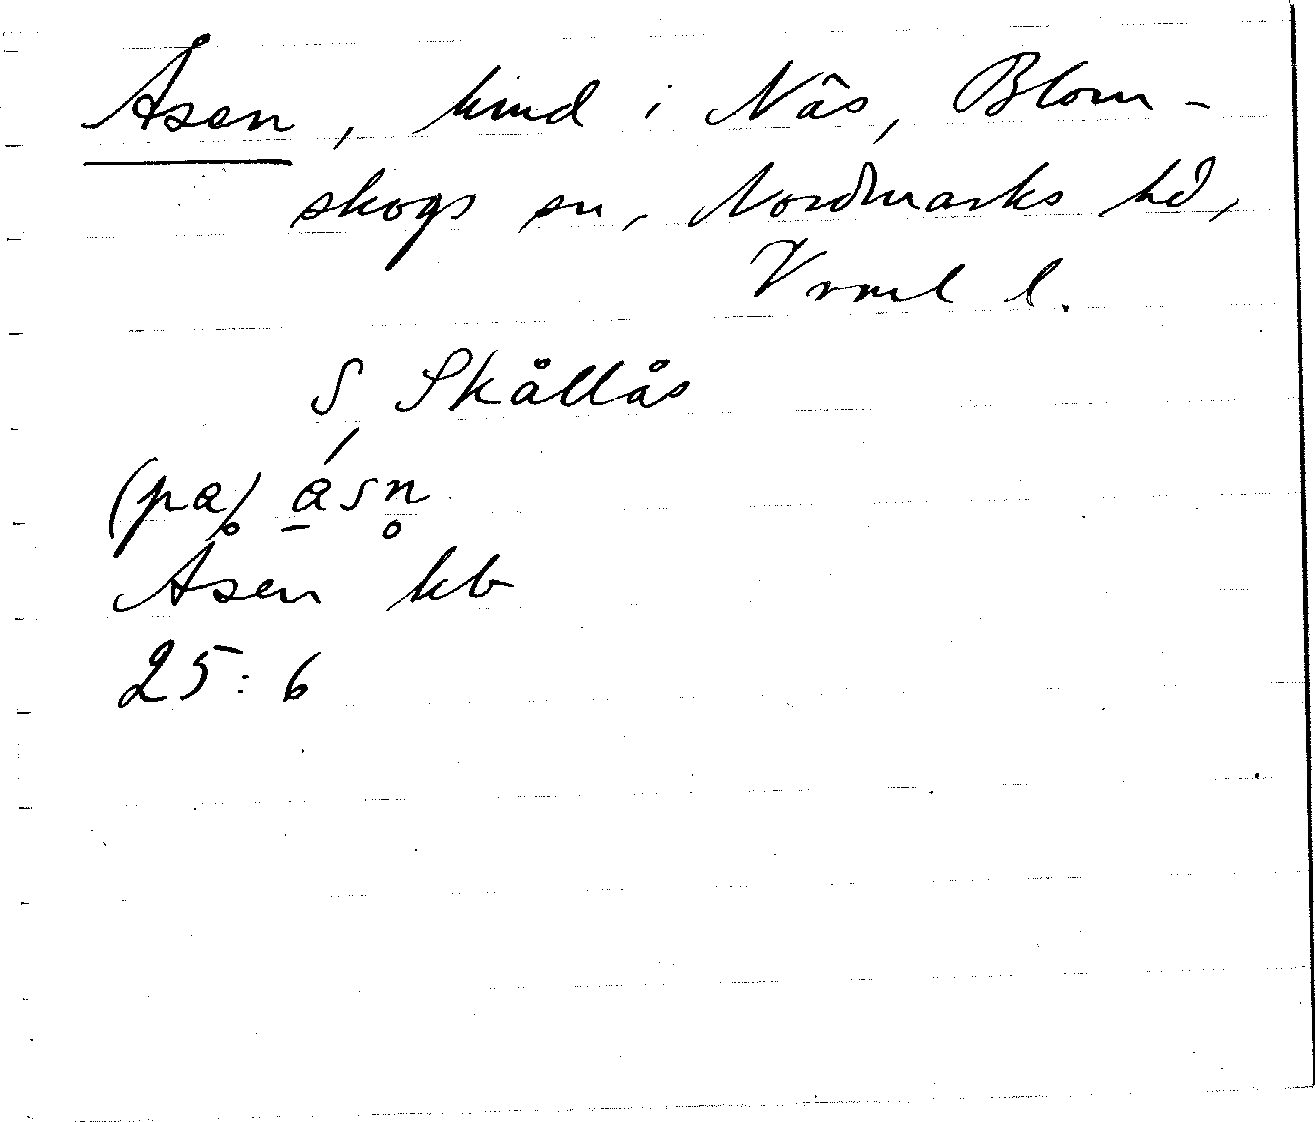 Åsen, hmd i Näs, Blom-
skogs sn, Nordmarks hd,
Vrml l.
S Skållås
(på) ásn̥
Åsen kb
25:6